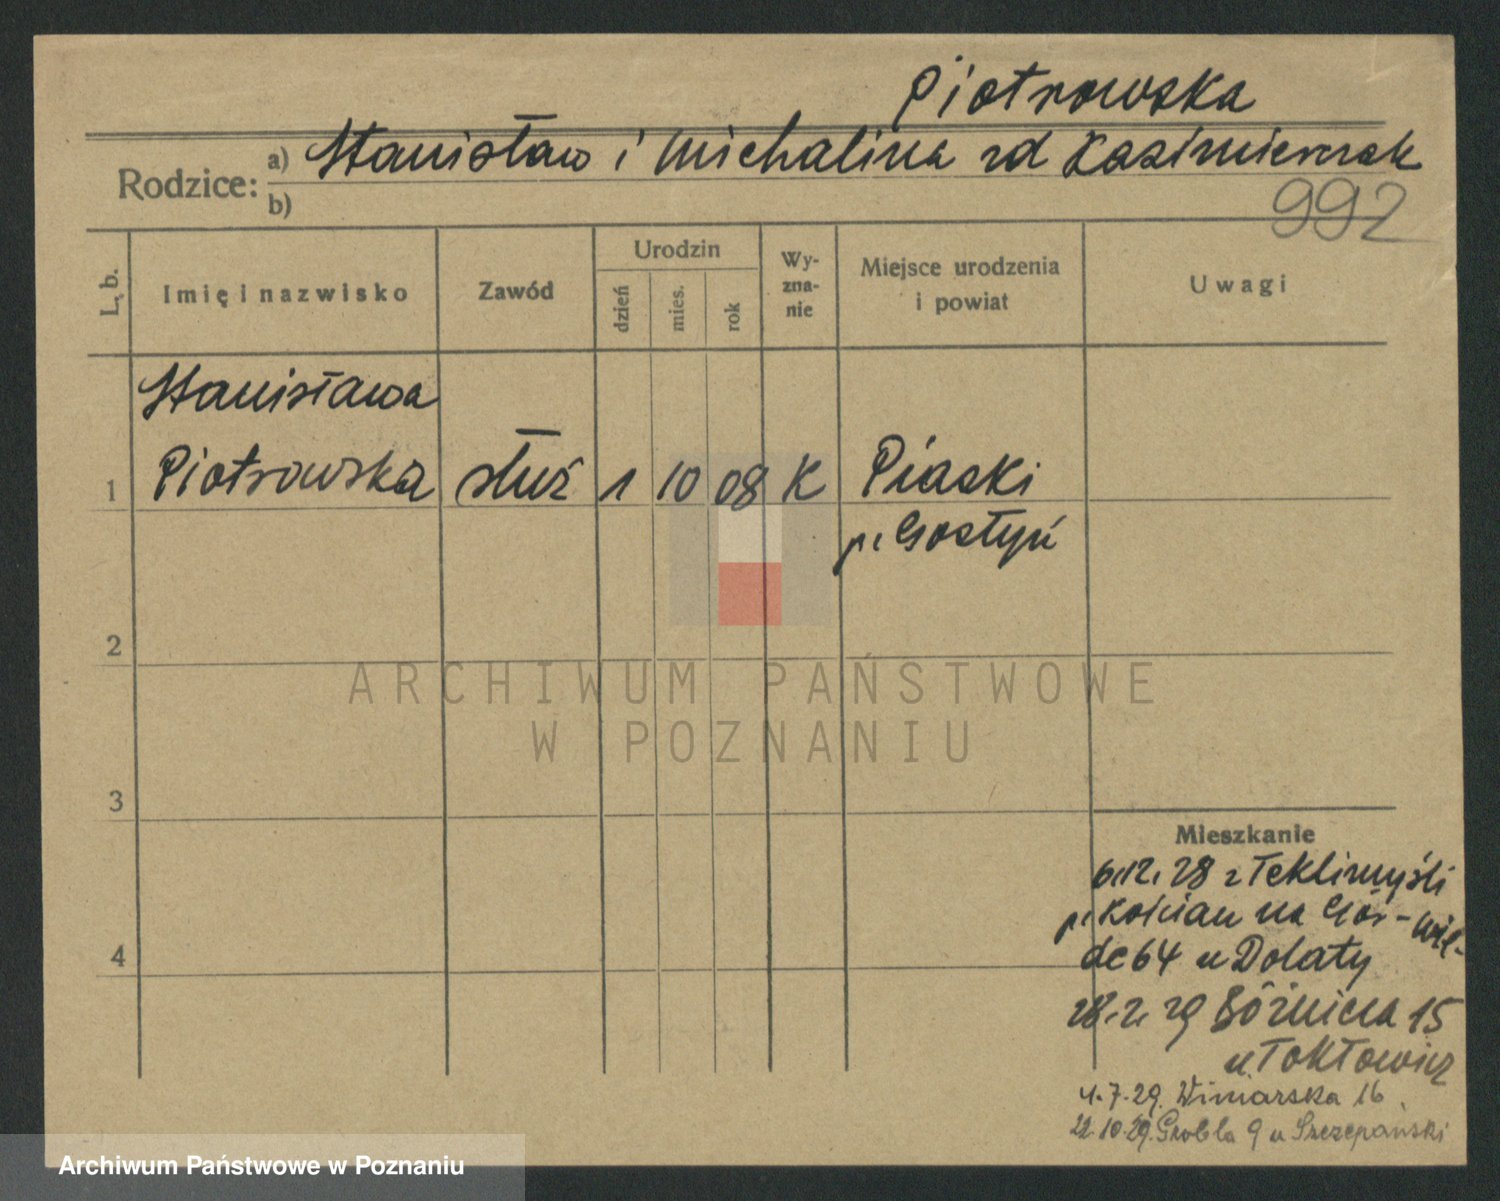 Piotrowska
Rodzice: a) Stanisław i Michalina zd Kazimierczak
b)
992
L. b.
Imię i nazwisko
Zawód
Urodzin
dzień
mies.
rok
Wy-
zna-
nie
Miejsce urodzenia
i powiat
Uwagi
Stanisława
1 Piotrowska służ 1 10 08 K Piaski
p. Gostyń
2
ARCHIWUM PAŃSTWOWE
W POZNANIU
3
Mieszkanie
6.12.28 z Teklimyśli
p. Kościan na Gór-Wil-
4
de 64 u Dolaty
28.2.29 Bóżnicza 15
u. Toktowicz
4.7.29. Winiarska 16.
22.10.29. Grobla 9 u Szczepański
Archiwum Państwowe w Poznaniu